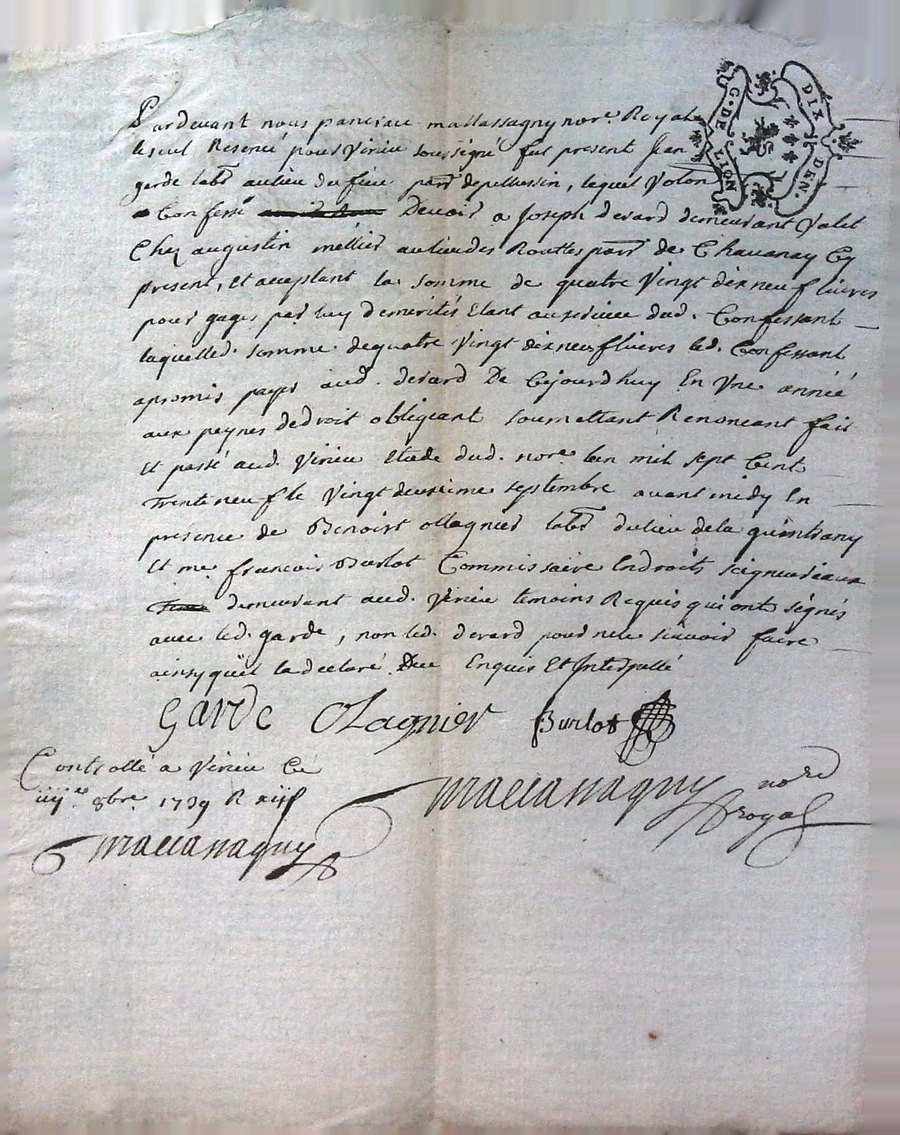 Pardevant nous pancrace mallassagny nore. Royal
le seul Reservé pour Virieu soussigné fut present Jean
garde labr. au lieu du fieu parr. de pellussin, lequel volon
Confesse Devoir a Joseph derard demeurant Valet
Chez augustin mellier au lieu des Routtes parr. de Chavanay Cy
present, et acceptant la somme de quatre Vingt dix neuf livres
pour gages par luy demerités Etant au service dud. Confessant
laquelle d. somme de quatre Vingt dix neuf livres led. Confessant
a promis payer aud. derard De Cejourdhuy En Une année
aux peynes de droit obligeant soumettant Renoncant fait
et passé aud. Virieu Etude dud. nore. lan mil sept Cent
Trente neuf le Vingt deuxieme septembre avant midy En
presence de Benoist ollagnier labr. du lieu de la quintrany
Et me. francois Burlot Commissaire En droits seigneuriaux
demeurant aud. Virieu temoins Requis qui ont signés
avec led. garde, non led. derard pour ne le scavoir faire
ainsy quil la declaré Enquis Et Interpellé
garde Olagnier Burlot
Controllé a Virieu Ce
iiije. 8bre. 1739 R xii s
mallassagny
mallassagny nore
royal
G. DE LYON
DIX DEN.